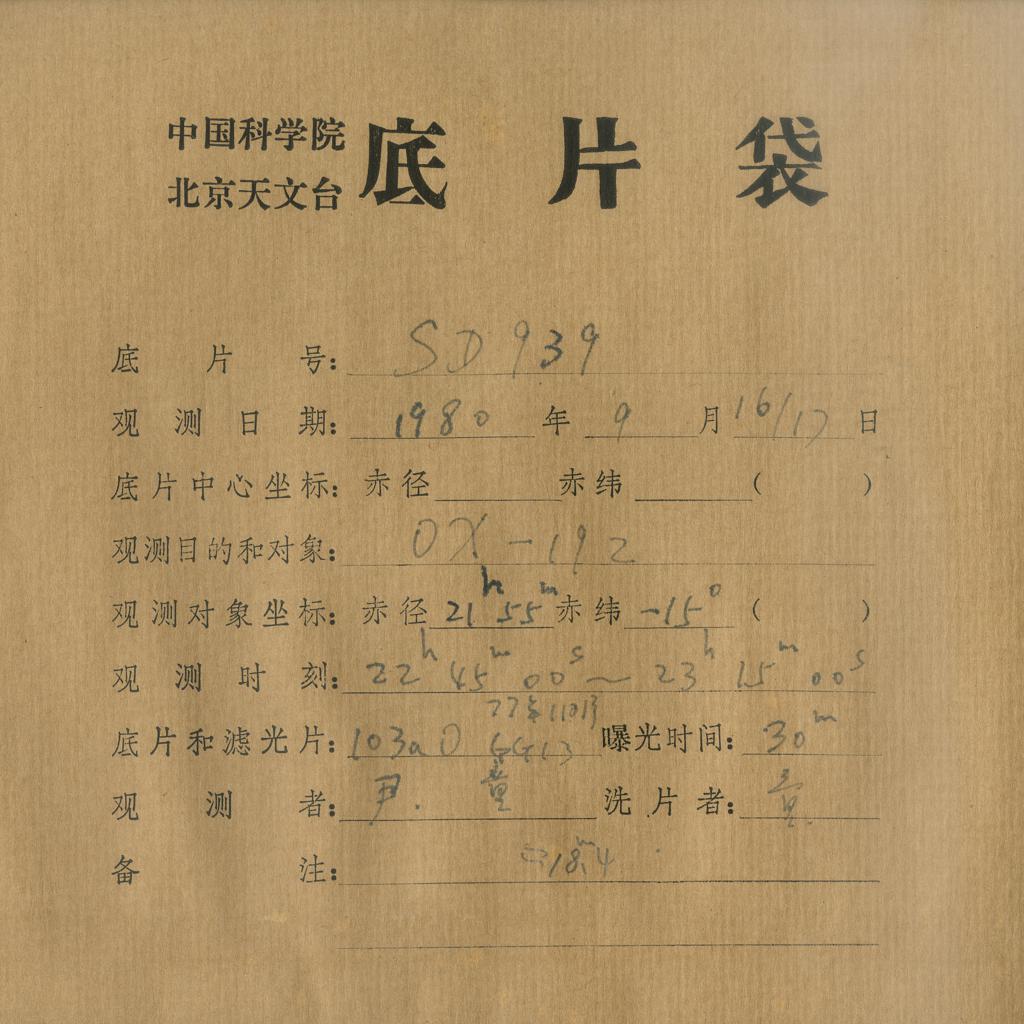 中国科学院
北京天文台
底片袋
底片号：SD939
观测日期：1980年9月16/17日
底片中心坐标：赤径 赤纬 （ ）
观测目的和对象：OX-192
观测对象坐标：赤径21h55m赤纬-15°（ ）
观测时刻：22h45m00s～23h15m00s
77年110月
底片和滤光片：103aO GG13 曝光时间：30m
观测者：尹．童 洗片者：童
备注：18m.4